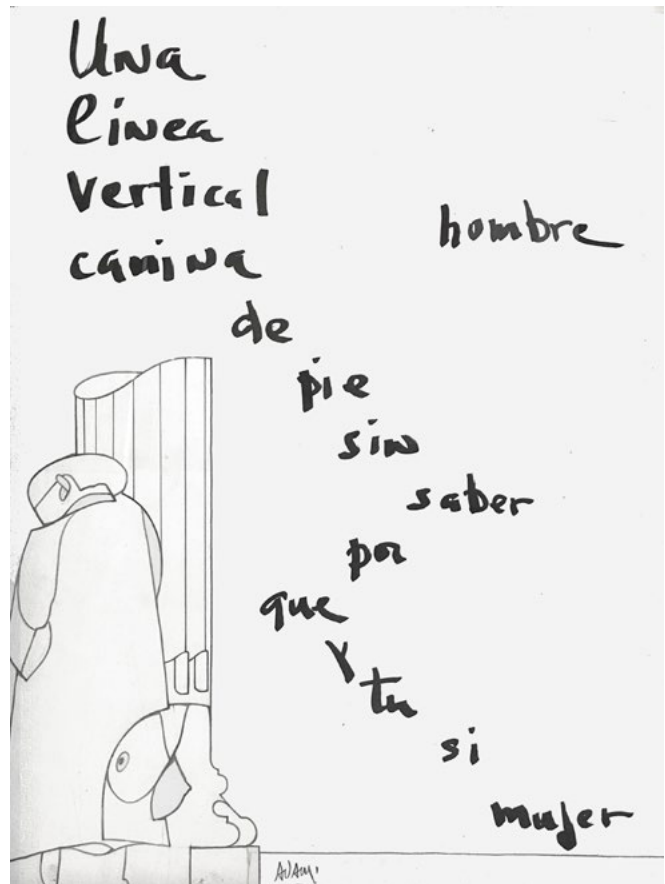 Una
linea
vertical
camina
hombre
de
pie
sin
saber
por
que
y
tu
si
mujer
ADAMI.